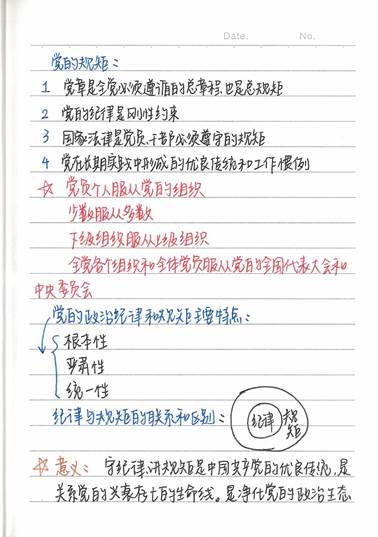 Date. No.
党的规矩：
1 党章是全党必须遵循的总章程,也是总规矩
2 党的纪律是刚性约束
3 国家法律是党员、干部必须遵守的规矩
4 党在长期实践中形成的优良传统和工作惯例
☆ 党员个人服从党的组织
少数服从多数
下级组织服从上级组织
全党各个组织和全体党员服从党的全国代表大会和
中央委员会
党的政治纪律和规矩主要特点：
根本性
严肃性
统一性
纪律与规矩的联系和区别： 纪律 规矩
☆ 意义： 守纪律、讲规矩是中国共产党的优良传统,是
关系党的兴衰存亡的生命线。是净化党的政治生态